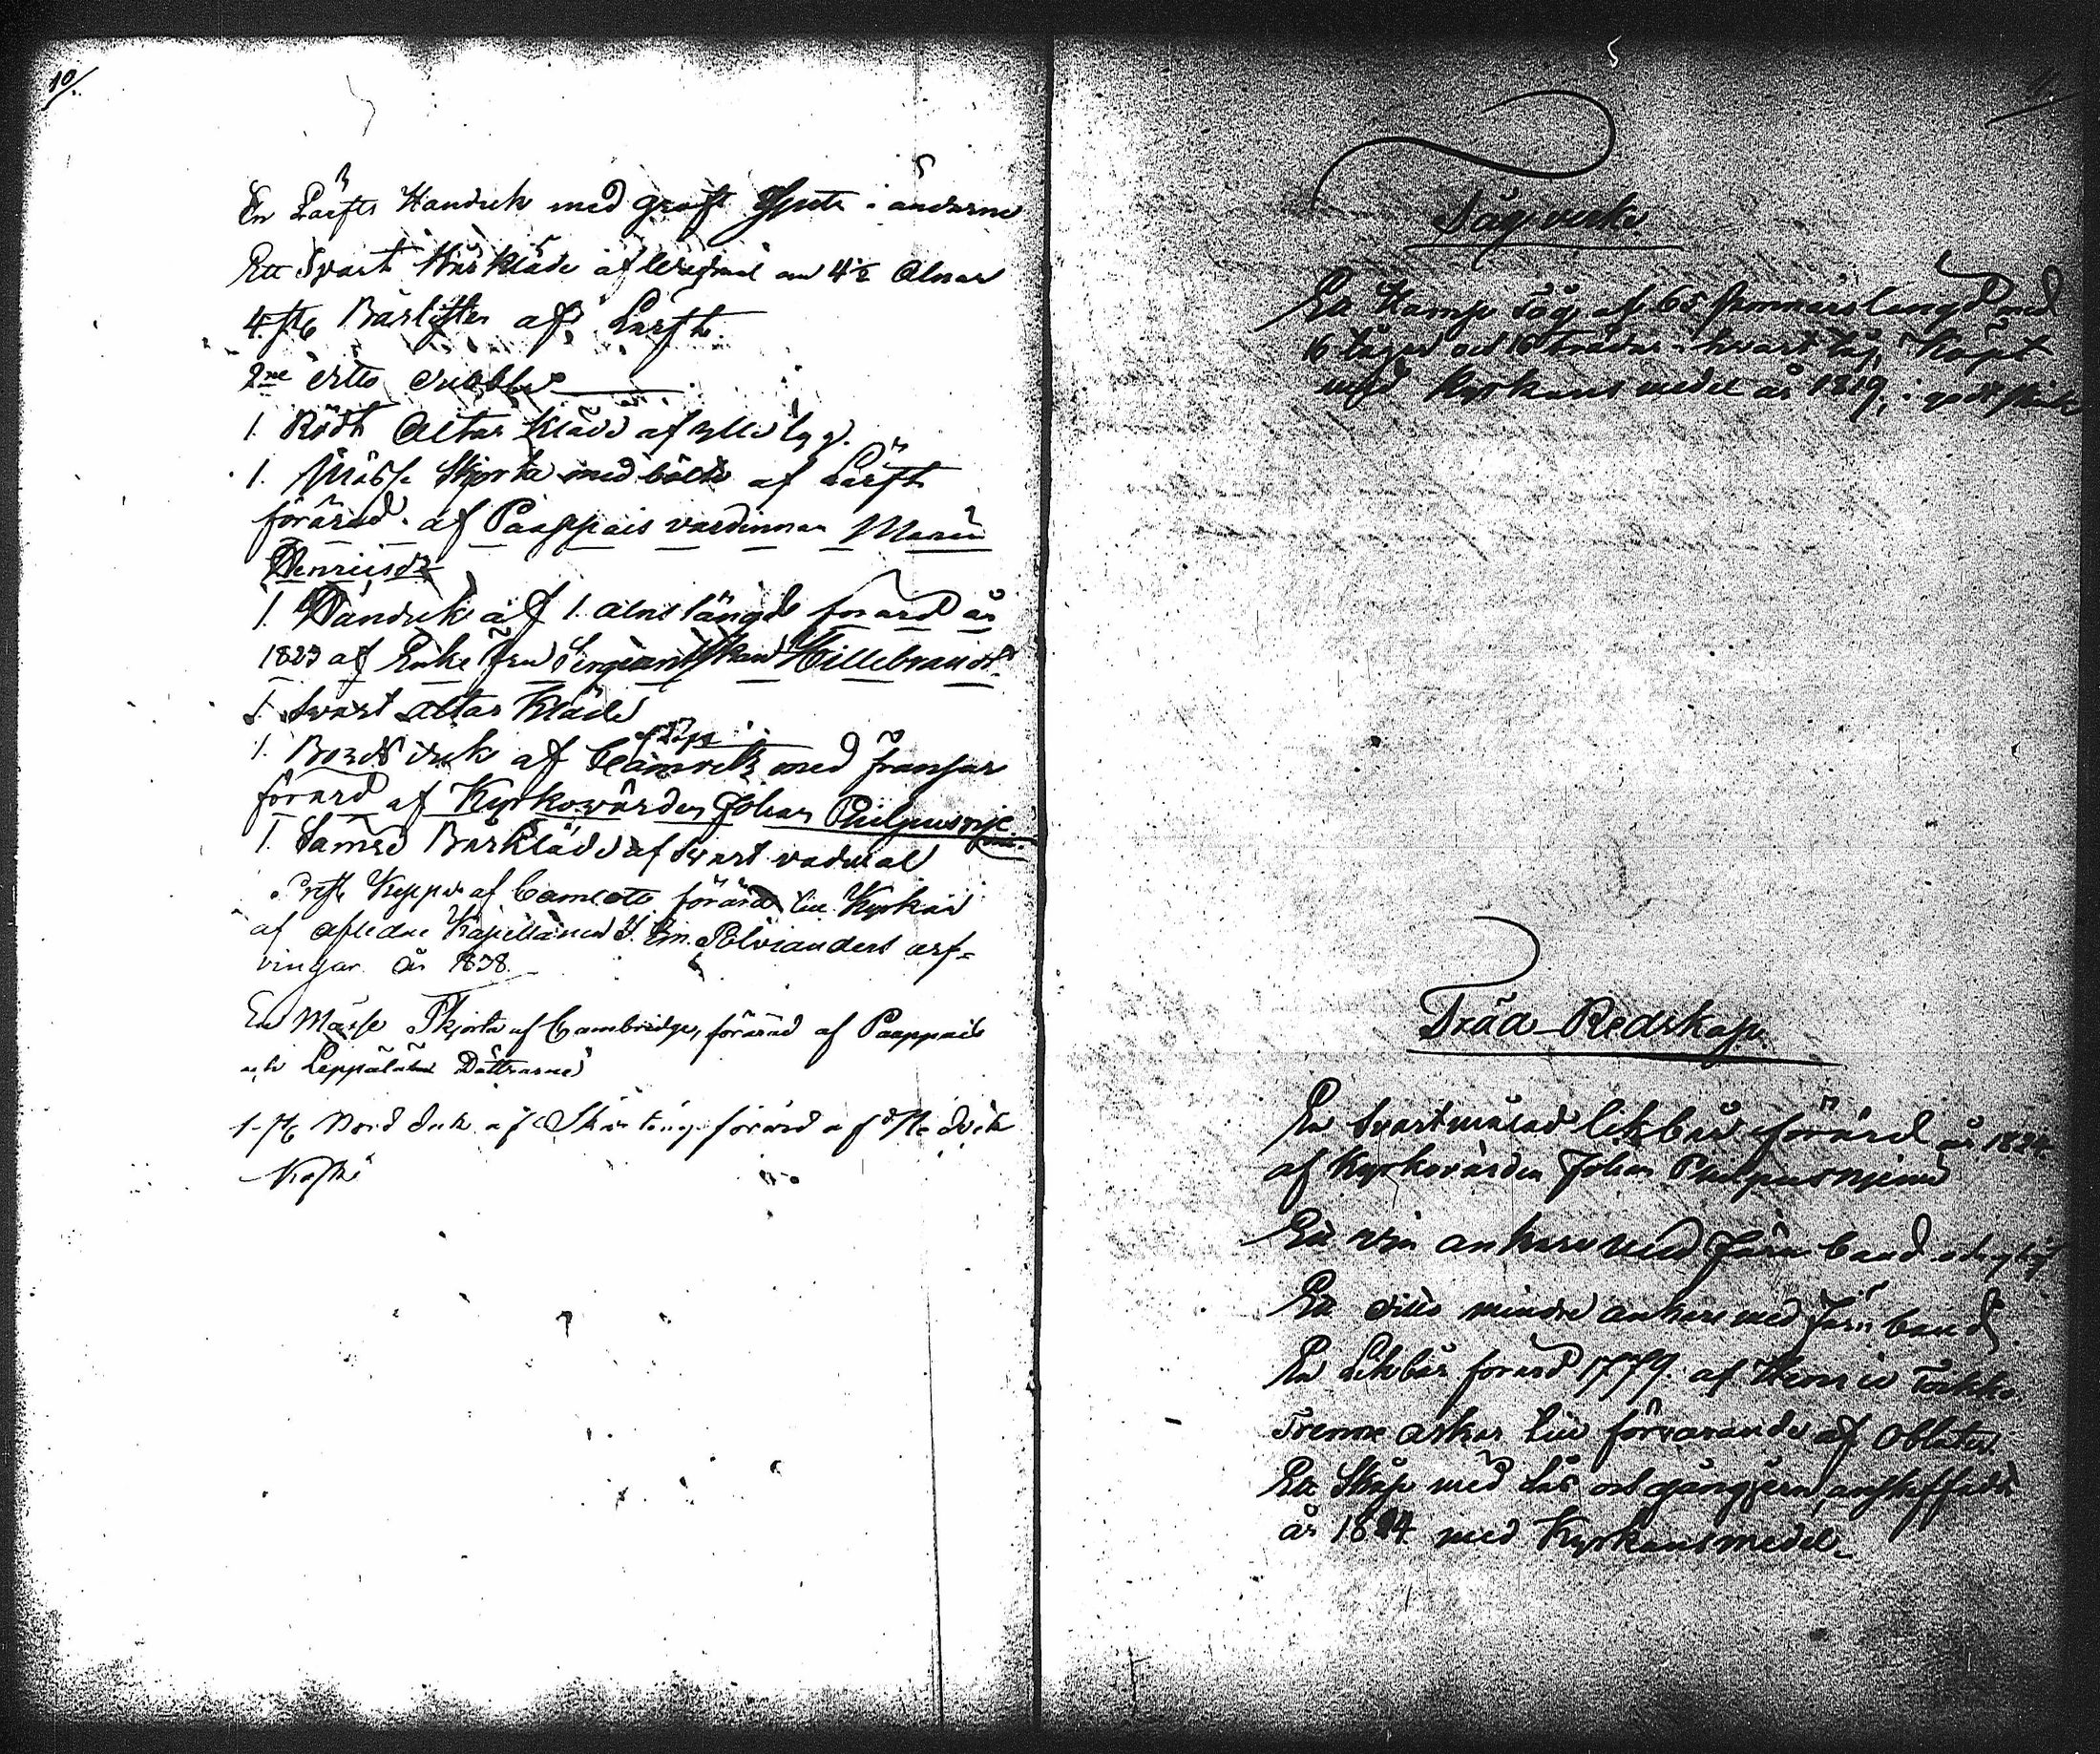 10/.
En Lärfts Handuk med groft i ändarne
Ett Svart Bårkläde af Wadmal om 4½ Alnar
4. st. Bårlister af Lärft.
2ne ditto dubbla
1. Rödt Altar kläde af ylle tyg.
1. Mässe Skjorta med bälte af Lärft
förärad af Paappais värdinnan Maria
Henricsdr
1. Handuk af 1. alns längd förärd år
1823 af Enke Fru Sergeantskan Hillebrandt.
1. Svart Altar Kläde
1. Bordsduk af med fransar
förärd af Kyrkovärden Johan Philpusnje
1. Sämre Bårkläde af svart vadmal
Prest Kappa af Camlott förärad till Kyrkan
af afledne Kapellanen J. Em. Polvianders arf-
vingar år 1838.
En Mässe Skjorta af Cambridge, förärad af Paappais
och Leppälaks Döttrarne
1 st. Bord duk af förärd af
Tågverke
Ett Hamp Tåg af 65 famnars längd med
16 och 16 trådar i hvart tåg, Köpt
med Kyrkans medel år 1819, i godt skick
Träd-Redskap
En svartmålad likbår förärd år 1824
af Kyrkovärden Johan Philpusnjemi
Ett vin ankare med Järn band
Ett ditto mindre ankare med Järn band
En Likbår förärd 1779. af Henric Toikko.
Trenne askar till förvarande af Oblater.
Ett Skåp med lås och gångjern, anskaffadt
år 1824 med Kyrkans medel.